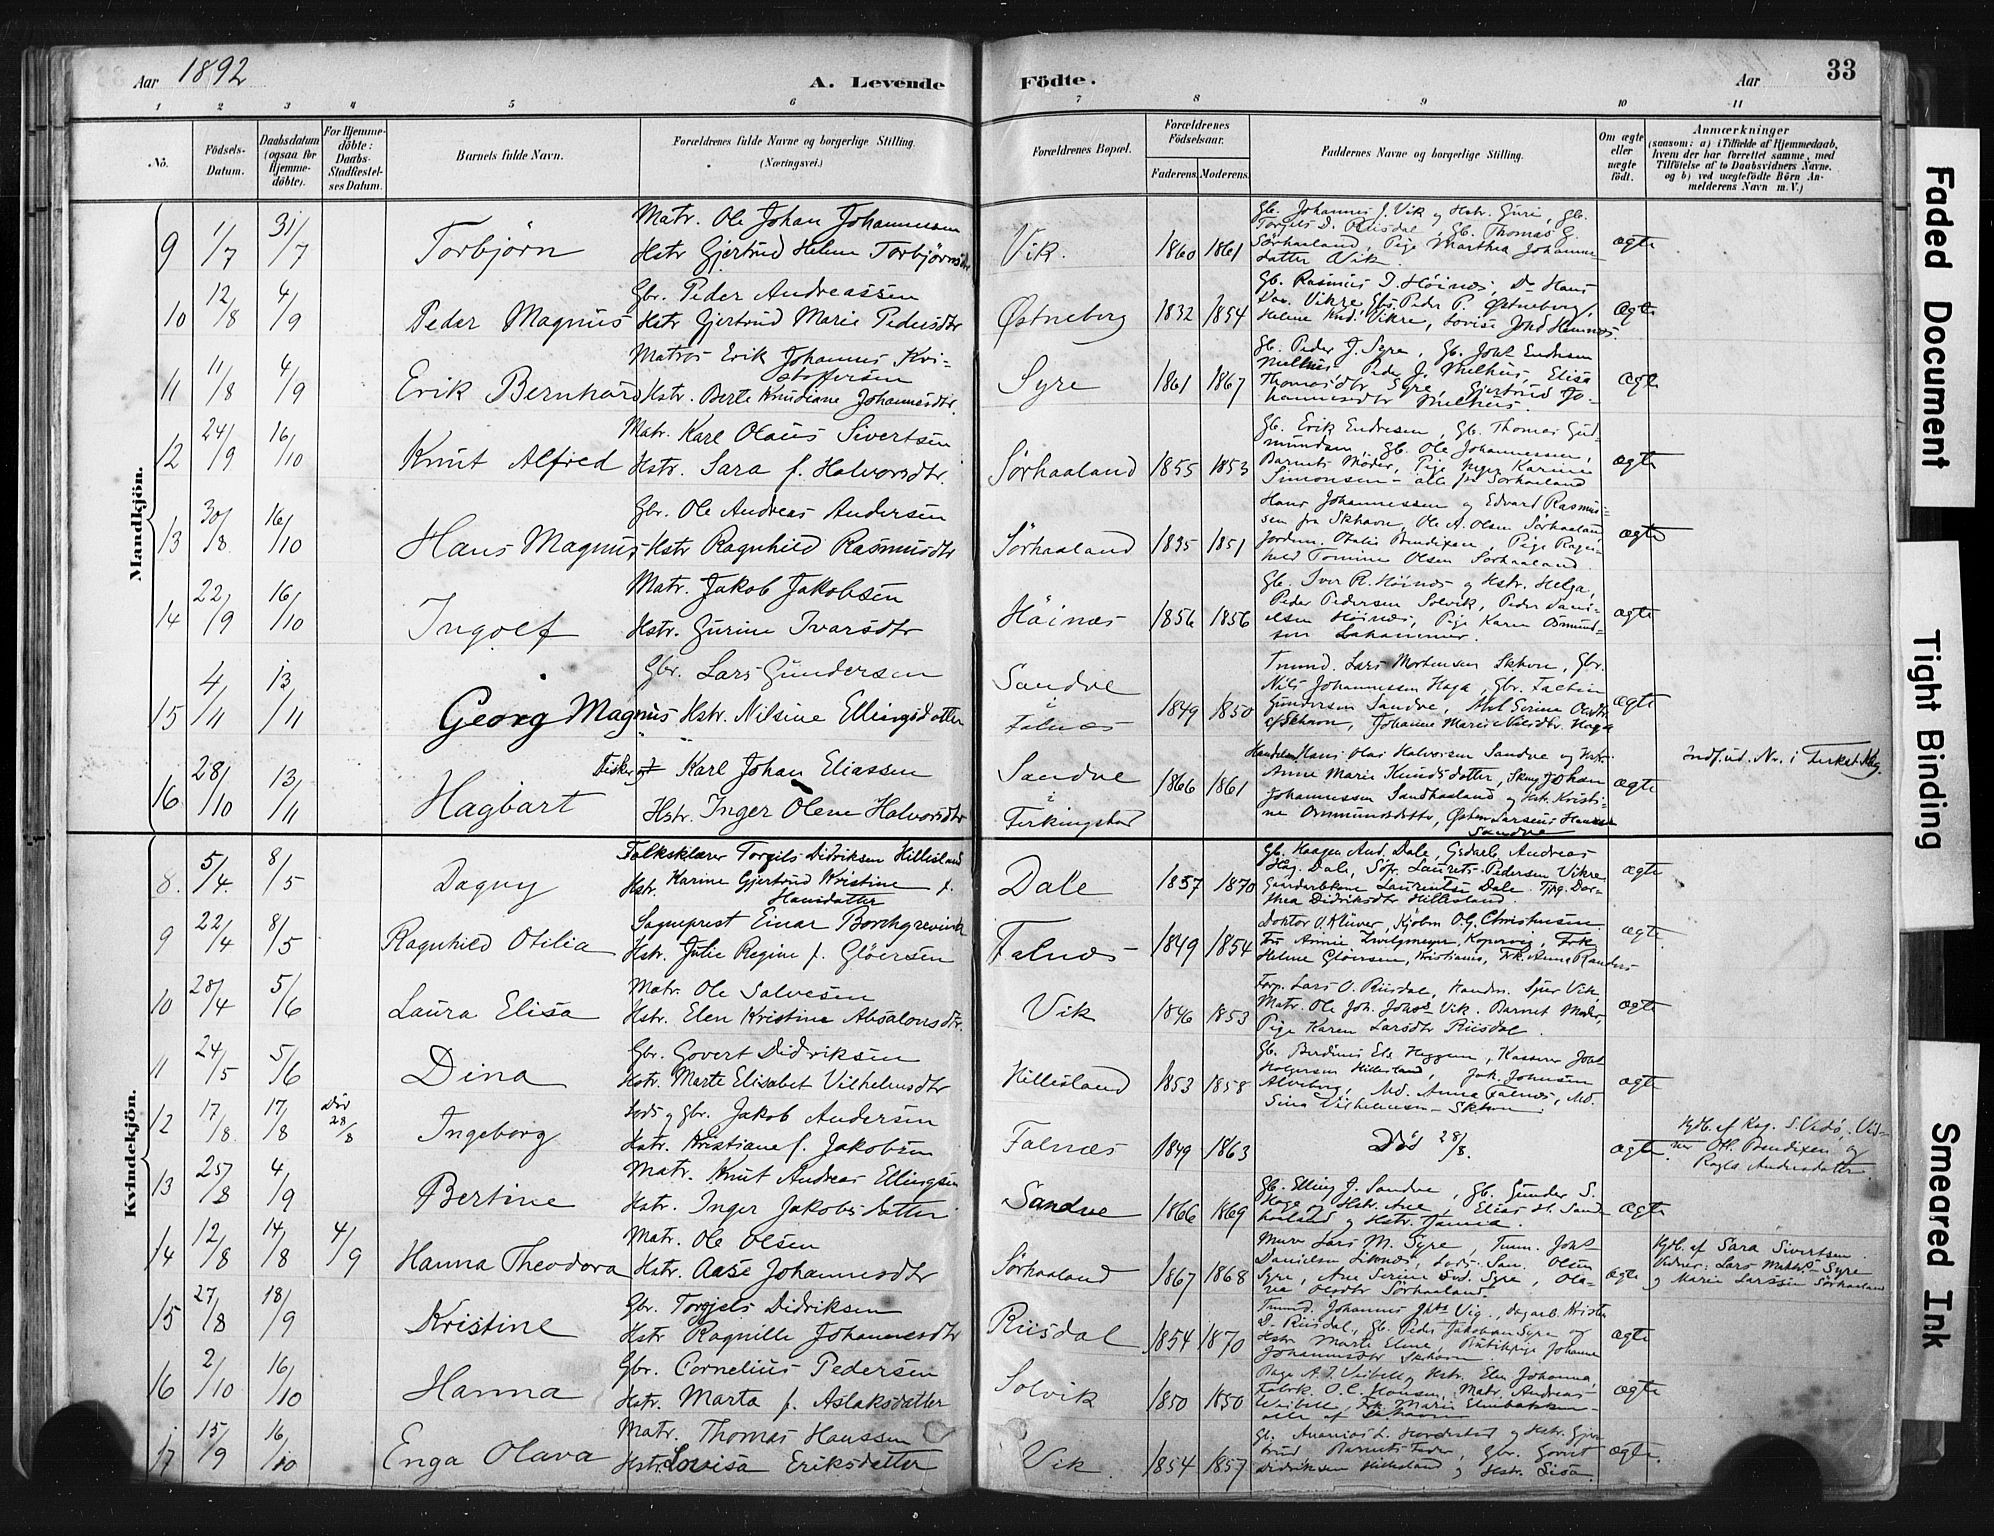 Aar 1892
A. Levende Födte.
Aar
33
1 2 3 4 5 6 7 8 9 10 11
No.
Födsels-Datum.
Daabsdatum (ogsaa for Hjemme-döbte).
For Hjemme-döbte: Daabs-Stadfæstelses Datum.
Barnets fulde Navn.
Forældrenes fulde Navne og borgerlige Stilling. (Næringsvei.)
Forældrenes Bopæl.
Forældrenes Födselsaar.
Faderens. Moderens.
Faddernes Navne og borgerlige Stilling.
Om ægte eller uægte födt.
Anmærkninger
(saasom: a) i Tilfælde af Hjemmedaab, hvem der har forrettet samme, med Tilföielse af to Daabsvidners Navne. og b) ved uægtefödte Börn Anmelderens Navn m. V.)
Mandkjön.
9 1/7 31/7 Torbjörn Matr. Ole Johan Johannessen
Hstr Gjertrud Helene Torbjörnsdtr Vik. 1860 1861 ægte
Gb. Johannes J. Vik og Hstr. Guri, Gb.
Torgils D. Riisdal, Gb. Thomas G.
Sörhaaland, Pige Marthea Johannes-
datter Vik.
10 12/8 4/9 Peder Magnus Gbr. Peder Andreassen
Hstr Gjertrud Marie Pedersdtr Østneborg 1832 1854 ægte
Gb. Rasmus J. Höinæs, Do Hans
Vikre, Peder P. Østneborg,
Helene Knd. Vikre, Lovise
11 11/8 4/9 Erik Bernhard Matros Erik Johannes Kri-
stoffersen
Hstr. Berte Knudiane Johannesdtr. Syre 1861 1867 ægte
Gb. Peder J. Syre, Gb. Joh. Endresen
Melhus, Peder J. Melhus, Elisa
Thomasdtr Syre, Gjertrud Jo-
hannesdtr Melhus.
12 24/9 16/10 Knut Alfred Matr. Karl Olaus Sivertsen
Hstr. Sara f. Halvorsdtr. Sörhaaland 1855 1853 ægte
Gb. Erik Endresen, Gb. Thomas Gud-
mundsen, Gb. Ole Johannessen,
Barnets Moder, Pige Inger Karine
Simonsen - alle fra Sörhaaland
13 30/8 16/10 Hans Magnus Gbr. Ole Andreas Andersen
Hstr Ragnhild Rasmusdtr Sörhaaland 1835 1851 ægte
Hans Johannessen og Edvard Rasmus-
sen fra Skhavn, Ole A. Olsen Sörhaaland,
Jordm. Otalie Bendixen, Pige Ragn-
hild Tomine Olsen Sörhaaland.
14 22/9 16/10 Ingolf Matr. Jakob Jakobsen
Hstr. Gurine Ivarsdtr Höinæs 1856 1856 ægte
Gb. Iver R. Höinæs og Hstr. Helga,
Peder Pedersen Solvik, Peder Dani-
elsen Höinæs, Pige Karen Osmund-
sen Lahammer.
15 4/11 13/11 Georg Magnus Gbr. Lars Gundersen
Hstr. Nilsine Ellingsdatter Sandve i Falnæs 1849 1850 ægte
Tmmd. Lars Mortensen Skhavn, Gbr.
Nils Johannessen Haga, Gbr. Fastin
Gundersen Sandve, Serine Olsdtr
af Skhavn, Johanne Marie Nilsdtr. Haga
16 28/10 13/11 Hagbart Fisker Karl Johan Eliassen
Hstr. Inger Olene Halvorsdtr Sandve i Ferkingstad 1866 1861 ægte
Handelsm Hans Olai Halvorsen Sandve og Hstr.
Anne Marie Knudsdatter, Skmg Johan
Johannessen Sandhaaland og Hstr. Kristi-
ne Osmundsdatter, Østen Larsens Hansen
Sandve
Indf. ud. Nr. i Ferkst. Kbg.
Kvindekjön.
8. 5/4. 8/5 Dagny Folkskl̸ærer Torgils Didriksen Hillisland
Hstr. Karine Gjertrud Kristine f.
Hansdatter Dale 1857 1870 ægte
Gb. Haagen And. Dale, Gsdarb. Andreas
Haag. Dale, Söp. Laurits Pedersen Vikre,
Gaardarbkone Laurentse Dale. Tjpg. Dor-
thea Didriksdtr Hillisland.
9 22/4 8/5 Ragnhild Otilia Sogneprest Einar Borchgrevink
Hstr. Julie Regine f. Glöersen Falnæs 1849 1854 ægte.
Doktor O. Klüwer, Kjöbm O.G. Christensen
Fru Annie Zwilgmeyer, Kopervig, Frk.
Helene Glöersen, Kristiania, Frk. Anna Randers
10 28/4 5/6 Laura Elisa Matr. Ole Salvesen
Hstr. Elen Kristine Absalonsdtr. Vik 1846 1853 ægte
Forp. Lars O. Riisdal, Handm. Sjur Vik,
Matr. Ole Joh. Johns Vik. Barnets Moder,
Pige Karen Larsdtr Riisdal.
11 24/5 5/6 Dina Gbr. Govert Didriksen
Hstr. Marte Elisabet Vilhelmsdtr Hillisland 1853 1858 ægte
Gb. Berdines Els. Heggem, Kasserer Joh.
Holgersen Hillesland, Joh. Johnsen
Alveberg, Md. Anna Falnæs, Md.
Sina Vilhelmsen Skhavn.
12 17/8. 17/8 Död 28/8 Ingeborg Lods og Gbr. Jakob Andersen
Hstr. Kristiane f. Jakobsen Falnæs 1849 1863 Död 28/8. ægte.
Hjdb. af Rag. S. Vedö, Vid-
ner Otl. Bendixen og
Ragla Andersdatter.
13 25/8 4/9 Bertine Matr. Knut Andreas Ellingsen
Hstr. Inger Jakobsdatter Sandve 1866 1869 ægte
Gb. Elling J. Sandve, Gb. Gunder S.
Haga og Hstr. Ane, Elias H. Sand-
haaland og Hstr. Tannea.
14 12/8 14/8 4/9 Hanna Theodora Matr. Ole Olsen
Hstr. Aase Johannesdtr Sörhaaland 1867 1868 ægte
Murer Lars M. Syre, Tmm. Joh.
Danielsen Liknæs, Lods San. Olsen
Syre, Ane Serine Svd. Syre, Ola-
va Olsdtr Sörhaaland.
Hjdb. af Sara Sivertsen.
Vidner: Lars Matths. Syre
og Marie Larssen Sörhaaland
15 27/8 18/9 Kristine Gbr. Torgjels Didriksen
Hstr Ragnille Johannesdtr Riisdal 1854 1870 ægte
Tmmd. Johannes Jhs Vig, dagarb. Kriste
D. Riisdal, Gb. Peder Jakobsen Syre og
Hstr Marte Eline, Butikpige Johanne
Johannesdtr Skhavn.
16 2/10 16/10 Hanna Gbr. Cornelius Pedersen
Hstr. Marta f. Aslaksdatter Solvik 1850 1850 ægte
Bager A. J. Veibell og Hstr. Elen Johanna,
Fabrik. O. C. Hansen, Matr. Andreas
Weibell, Frk. Marie Elmbakken
alle af Skhavn
17 15/9 16/10 Enga Olava Matr. Thomas Hanssen
Hstr. Lovisa Eriksdatter Vik. 1854 1857 ægte.
Gb. Ananias L. Hovdestad og Hstr. Gjer-
trud Barnets Fader, Gbr. Govert
Didriksen Hillesland og Hstr. Lisa.
Faded Document
Tight Binding
Smeared Ink